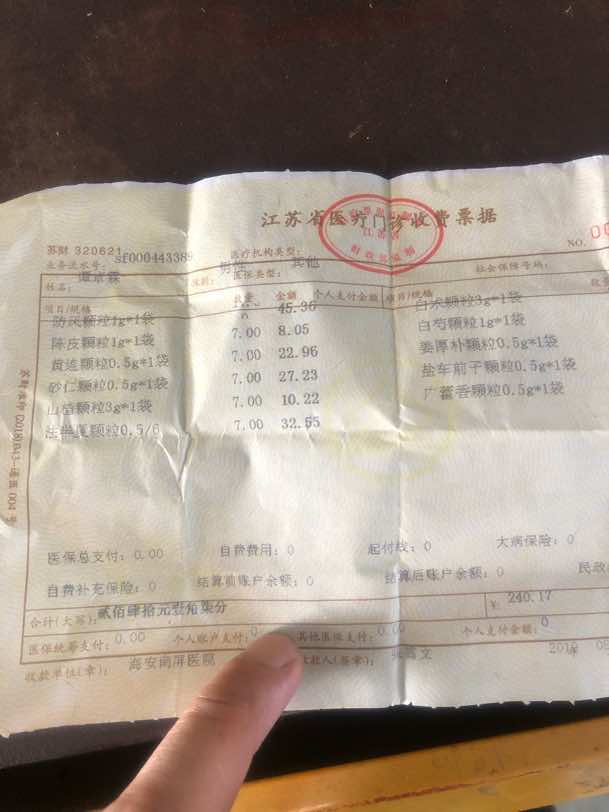 江苏省医疗门诊收费票据
苏财 320621
医疗机构类型:
NO. 00
业务流水号: sf000443389
医保类型: 其他
社会保障号码:
姓名:
性别:
项目/规格 数量 金额 个人支付金额 项目/规格
防风颗粒1g*1袋 45.36 白术颗粒3g*1袋
陈皮颗粒1g*1袋 7.00 8.05 白芍颗粒1g*1袋
黄连颗粒0.5g*1袋 7.00 22.96 姜厚朴颗粒0.5g*1袋
砂仁颗粒0.5g*1袋 7.00 27.23 盐车前子颗粒0.5g*1袋
山药颗粒3g*1袋 7.00 10.22 广藿香颗粒0.5g*1袋
法半夏颗粒0.5/6 7.00 32.55
医保总支付: 0.00 自费费用: 0 起付线: 0 大病保险: 0
自费补充保险: 0 结算前账户余额: 0 结算后账户余额: 0 民政
合计(大写): 贰佰肆拾元壹角柒分 ¥: 240.17
医保统筹支付: 0.00 个人账户支付: 0 其他医保支付: 0.00 个人支付金额: 0
收款单位(章): 海安南屏医院 收款人(签章):